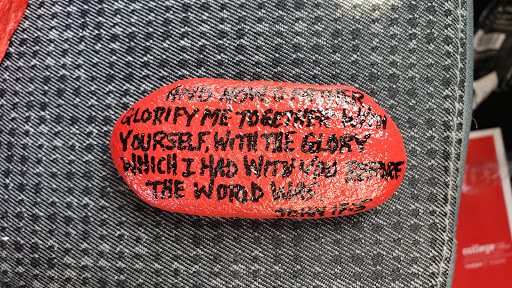 AND NOW O FATHER
GLORIFY ME TOGETHER WITH
YOURSELF, WITH THE GLORY
WHICH I HAD WITH YOU BEFORE
THE WORLD WAS
JOHN 17:5
college